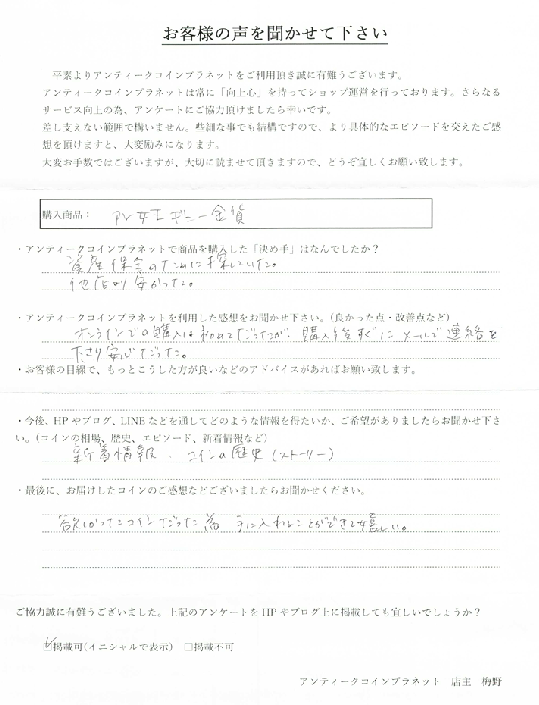 お客様の声を聞かせて下さい
卒素よりアンティークコインプラネットをご利用頂き誠に有難うございます。
アンティークコインプラネットは常に「向上心」を持ってショップ運営を行っております。さらなる
サービス向上の為、アンケートにご協力頂けましたら幸いです。
差し支えない範囲で構いません。些細な事でも結構ですので、より具体的なエピソードを交えたご感
想を頂けますと、大変励みになります。
大変お手数ではございますが、大切に読ませて頂きますので、どうぞ宜しくお願い致します。
購入商品： 女王ギニー金貨
・アンティークコインプラネットで商品を購入した「決め手」はなんでしたか？
資産保全のために探していた。
他店より安かった。
・アンティークコインプラネットを利用した感想をお聞かせ下さい。(良かった点・改善点など)
オンラインでの購入は初めてだったが、購入後すぐにメールで連絡を
下さり安心だった。
・お客様の目線で、もっとこうした方が良いなどのアドバイスがあればお願い致します。
・今後、HPやブログ、LINEなどを通してどのような情報を得たいか、ご希望がありましたらお聞かせ下さ
い。(コインの相場、歴史、エピソード、新着情報など)
新着情報、コインの歴史(ストーリー)
・最後に、お届けしたコインのご感想などございましたらお聞かせください。
欲しかったコインだった為、手に入れることができて嬉しい。
ご協力誠に有難うございました。上記のアンケートをHPやブログ上に掲載しても宜しいでしょうか？
☑掲載可(イニシャルで表示) □掲載不可
アンティークコインプラネット 店主 梅野